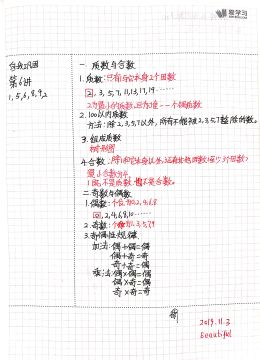 爱学习
自我巩固
第6讲
1,5,6,8,9,2
一 质数与合数
1.质数:只有1与它本身2个因数
2,3,5,7,11,13,17,19……
2为最小的质数,且为唯一一个偶质数
2.100以内质数
方法:除2,3,5,7以外,所有不能被2,3,5,7整除的数。
3.
4.合数:除1和它本身以外,还有其他因数
最小合数为4
1既不是质数,也不是合数。
二 奇数与偶数
1.偶数:个位为0,2,4,6,8
0,2,4,6,8,10……
2.奇数:个位为1,3,5,7,9
3.奇偶性规律
加法:偶+偶=偶
偶+奇=奇
奇+奇=偶
乘法:偶×偶=偶
偶×奇=偶
奇×奇=奇
阅
2019.11.3
Beautiful